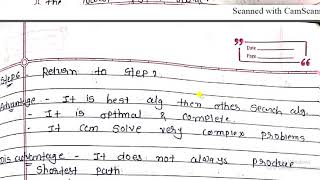 Scanned with CamScan
Date
Page
Step 6 Return to Step 2
Advantage - It is best alg then other search alg.
- It is optimal & complete
- It can solve very complex problems
Disadvantage - It does not always produce
Shortest path